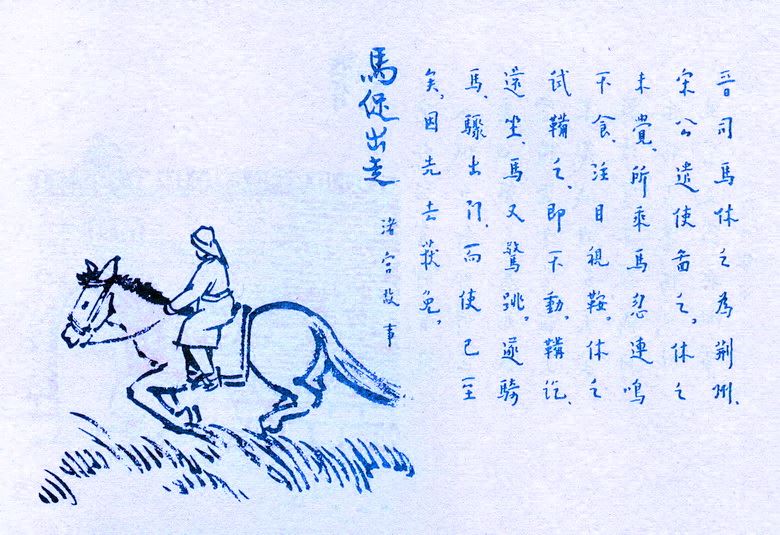 晉司馬休之為荊州、
宋公遣使啚之。休之
未覺、所乘馬忽連鳴
不食、注目視鞍。休之
試鞴之、即不動、鞴訖、
還坐、馬又驚跳。遂騎
馬、驟出門、而使已至
矣、因走去获免。
馬促出走
渚宮故事